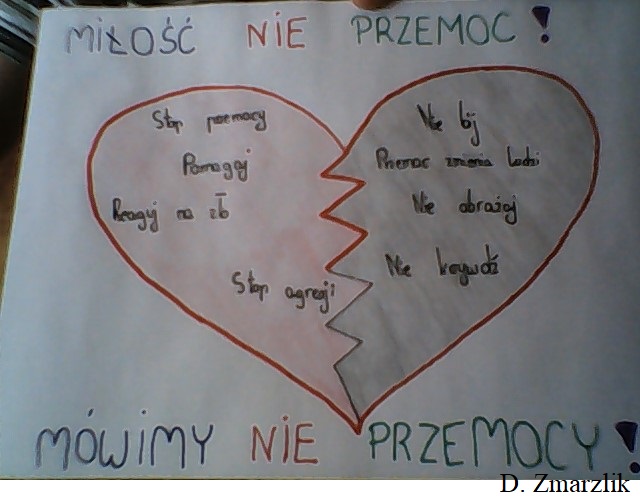 MIŁOŚĆ NIE PRZEMOC!
Stop przemocy
Pomagaj
Reaguj na zło
Stop agresji
Nie bij
Przemoc zmienia ludzi
Nie obrażaj
Nie krzywdź
MÓWIMY NIE PRZEMOCY!
D. Zmarzlik